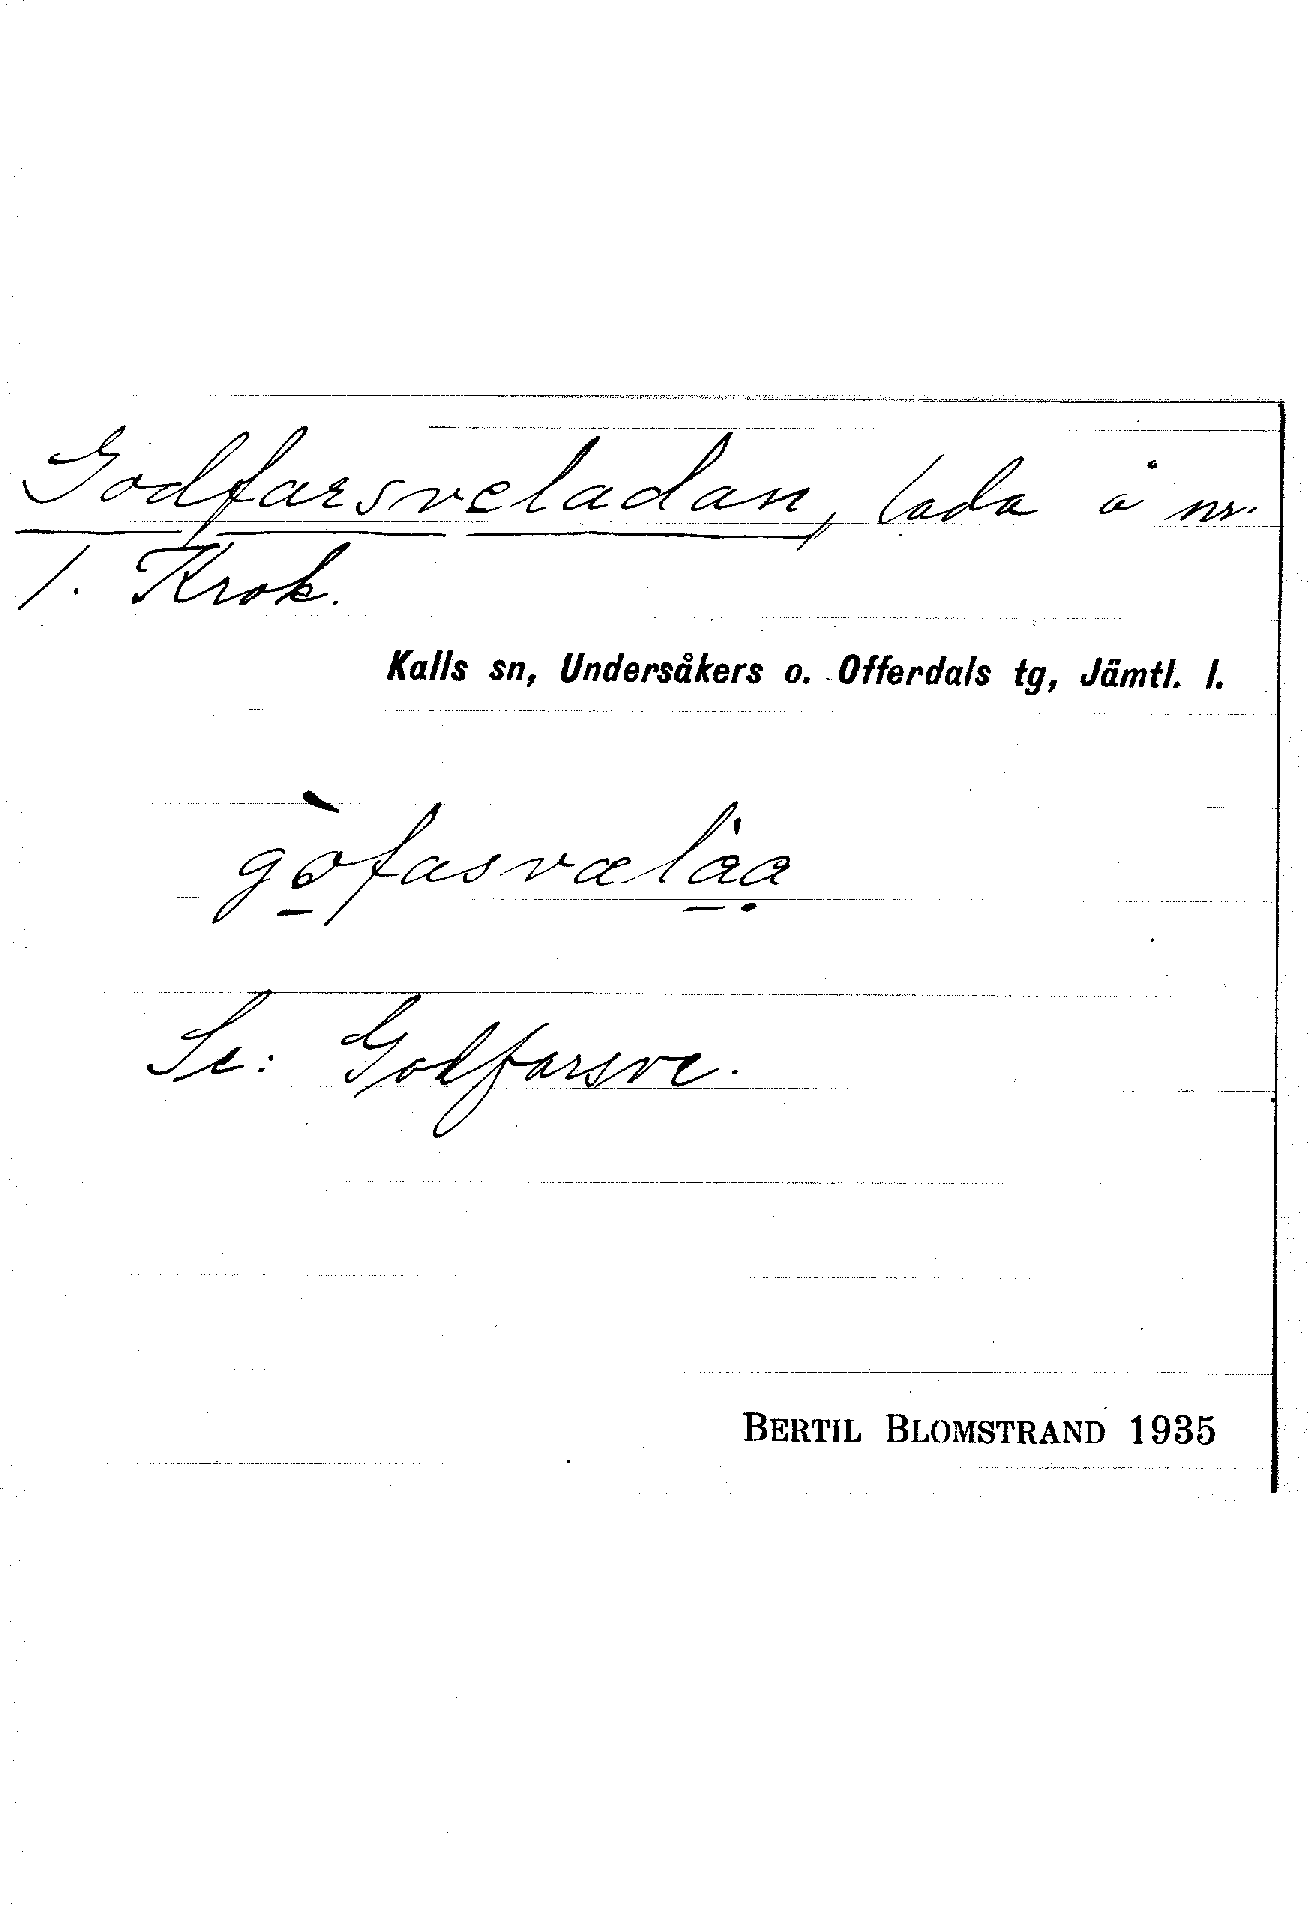 Godfarsveladan, lada å nr.
1. Krok.
Kalls sn, Undersåkers o. Offerdals tg, Jämtl. l.
gòfasvælàa
Se: Godfarsve.
BERTIL BLOMSTRAND 1935